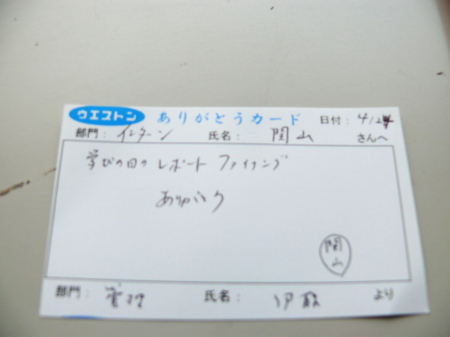 ウエストン ありがとうカード 日付: 4/24
部門: インターン 氏名: 関山 さんへ
学びの日の レポート ファイリング
ありがとう
関山
部門: 管理 氏名: より